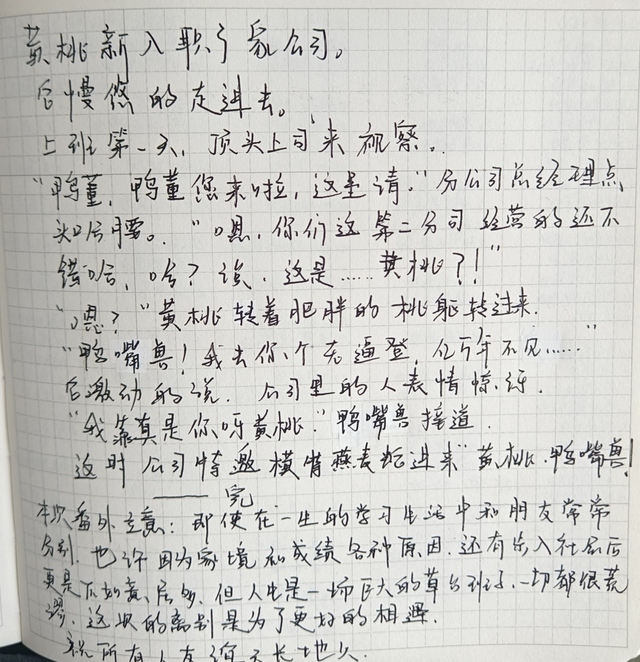 黄桃新入职了家公司。
它慢悠的走进去。
上班第一天,顶头上司来视察。
"鸭董,鸭董您来啦,这里请。"分公司总经理点
头哈腰。"嗯,你们这第二分司经营的还不
错哈,哈?诶,这是……黄桃?!"
"嗯?"黄桃转着肥胖的桃躯转过来.
"鸭嘴兽!我去你个老逼登,亿万年不见……"
它激动的说.公司里的人表情惊讶.
"我靠真是你呀黄桃."鸭嘴兽接道.
这时公司特邀横背燕表进来"黄桃.鸭嘴兽!
——完
本次番外立意:即使在一生的学习生活中和朋友常常
分别.也许因为家境和成绩各种原因.还有步入社会后
更是.但人生是一场巨大的草台班子.一切都很荒
谬.这次的离别是为了更好的相遇.
祝所有人友谊天长地久.